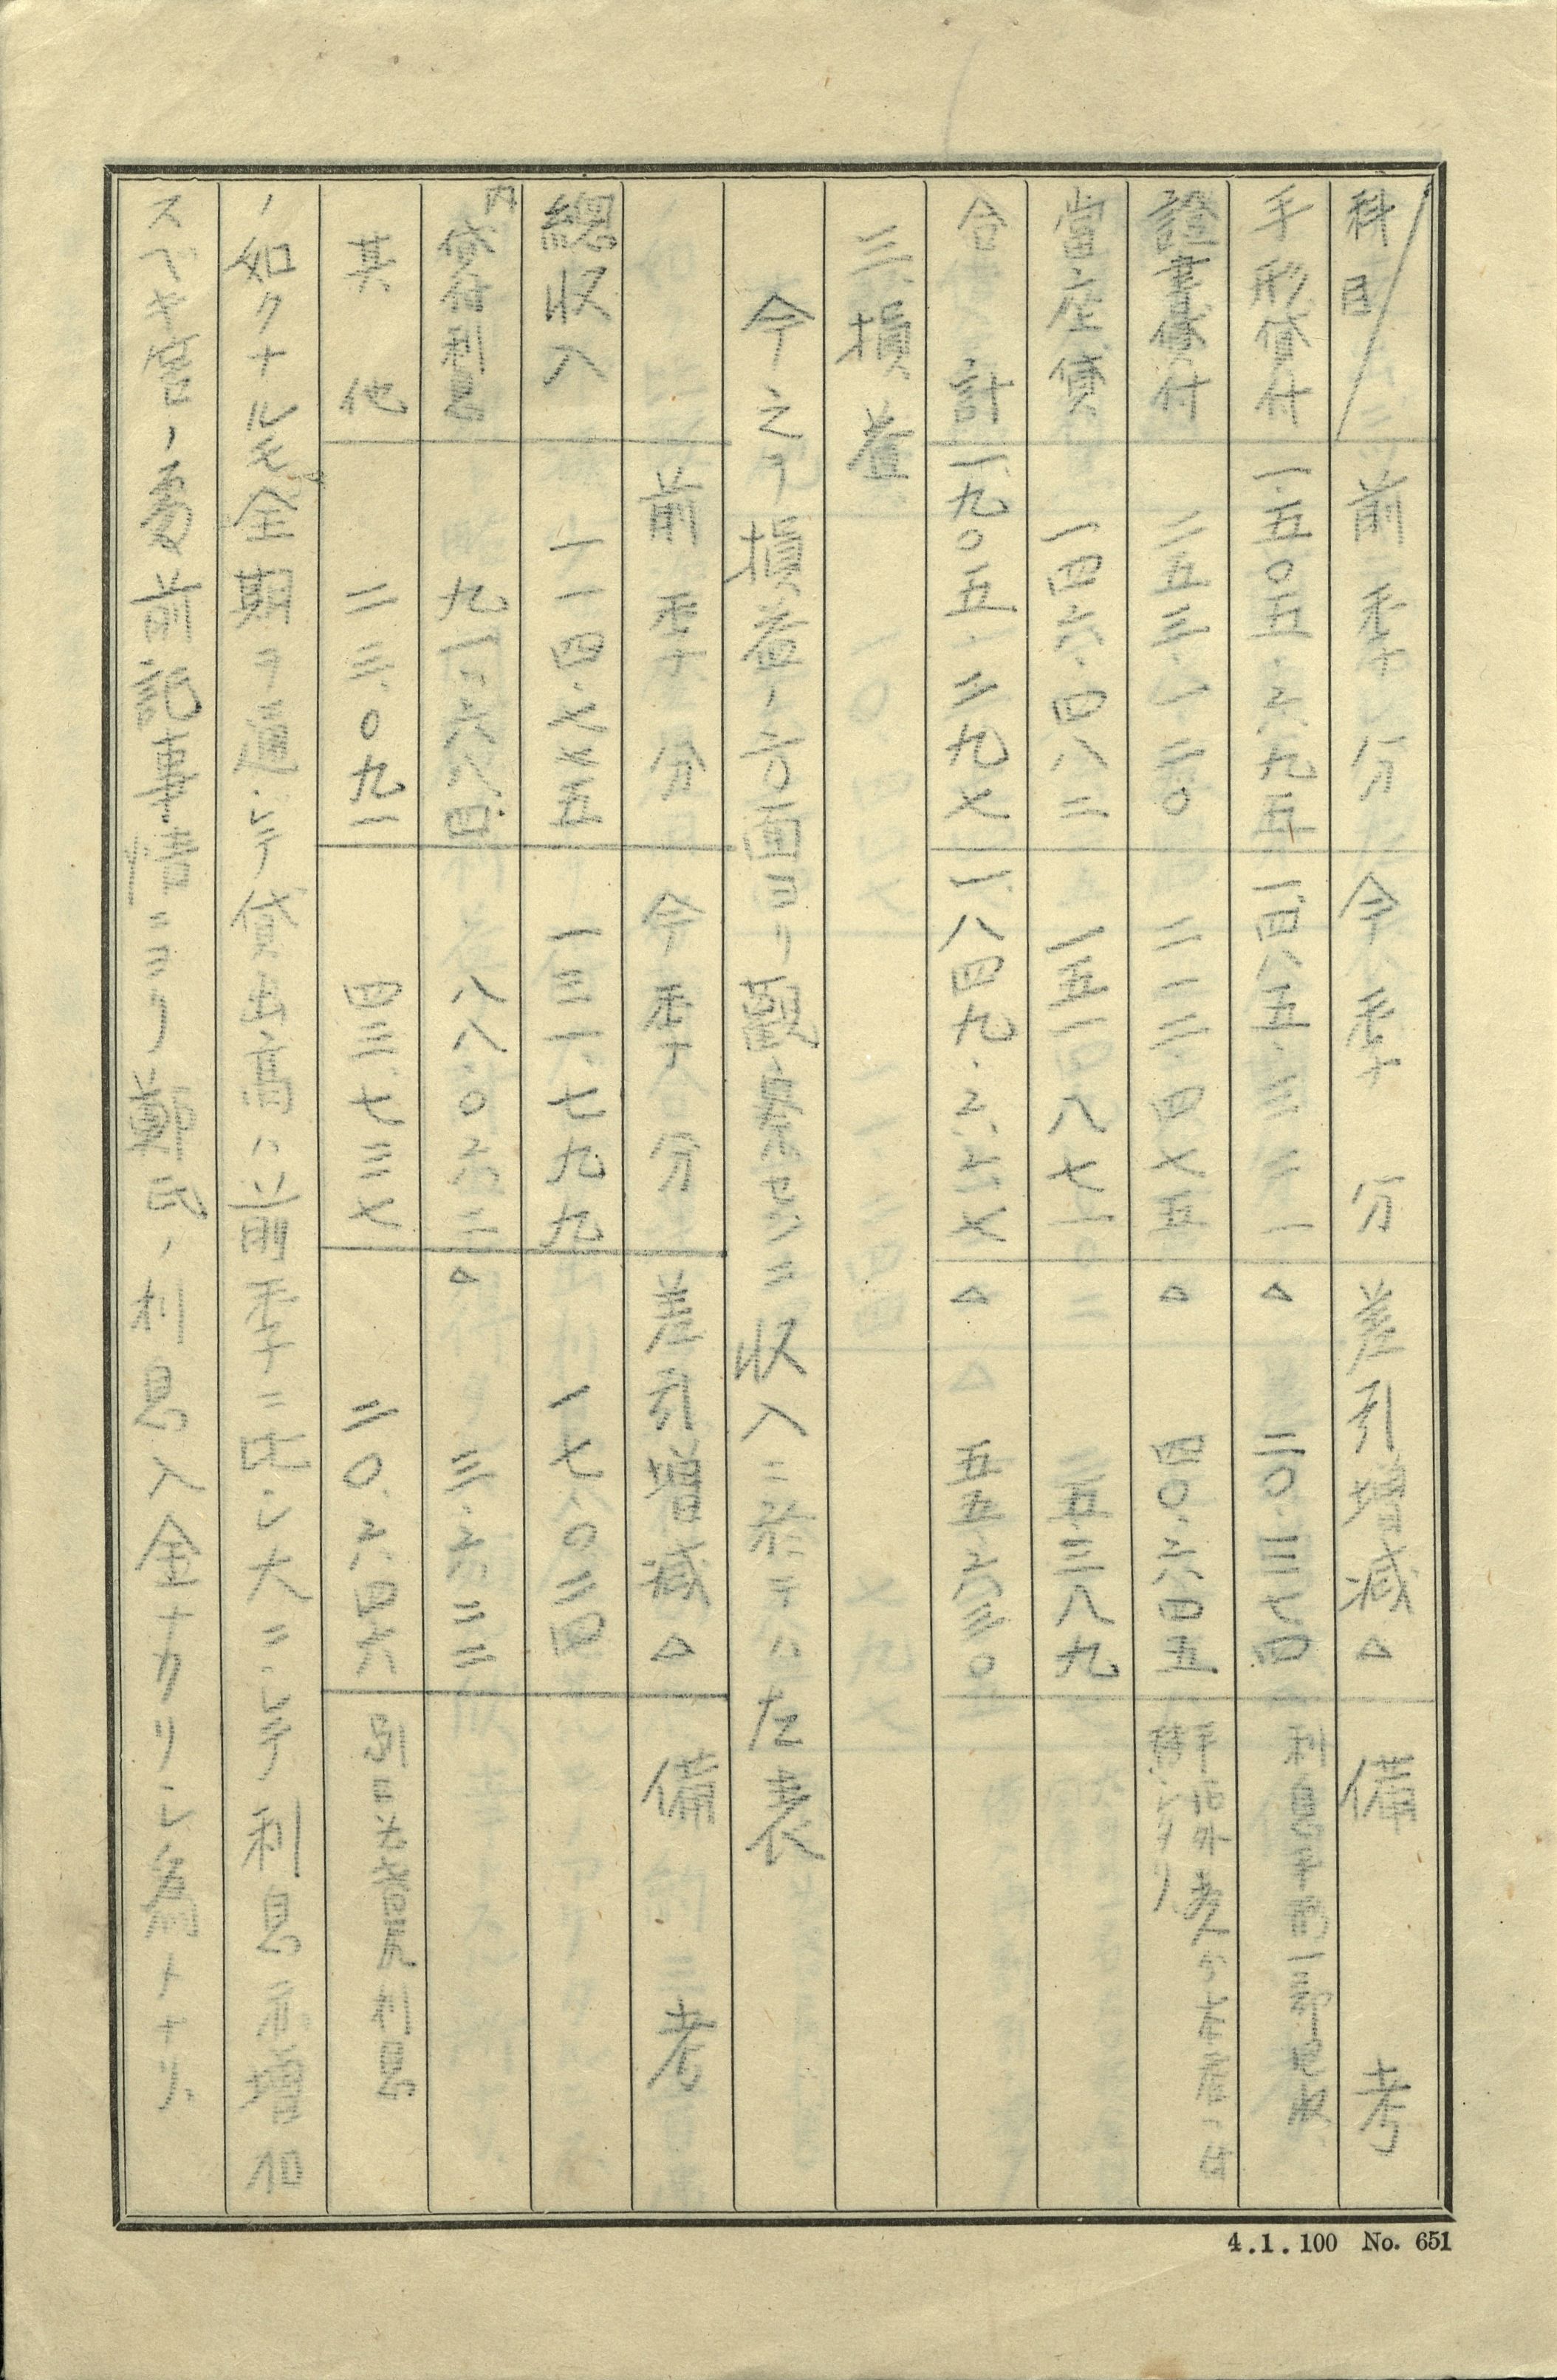 科目 前季分 今季分 差引増減△ 備考
手形貸付 一、五〇五、六九五 一、四八五、三二一 △ 二〇、三七四 利息手形一部見收
證書貸付 二五三、一二〇 二一二、四七五 △ 四〇、六四五
當座貸 一四六、四八二 一五一、八七一 五、三八九
合計 一、九〇五、二九七 一、八四九、六六七 △ 五五、六三〇
三、損益
今之ヲ損益ノ方面ヨリ觀察センニ收入ニ於テハ左表
前季分 今季分 差引増減△ 備考
總收入 一一四、七七五 一三一、七九九 一七、〇二四
内貸付利息 九一、六八四 八八、〇六二 △ 三、六二二
其他 二三、〇九一 四三、七三七 二〇、六四六 利息
ノ如クナルモ全期ヲ通シテ貸出高ハ前季ニ比シ大ニシテ利息亦増加
スベキ筈ノ處前記事情ニヨリ鄭氏ノ利息入金ナカリシ為ナリ
4.1.100 No. 651